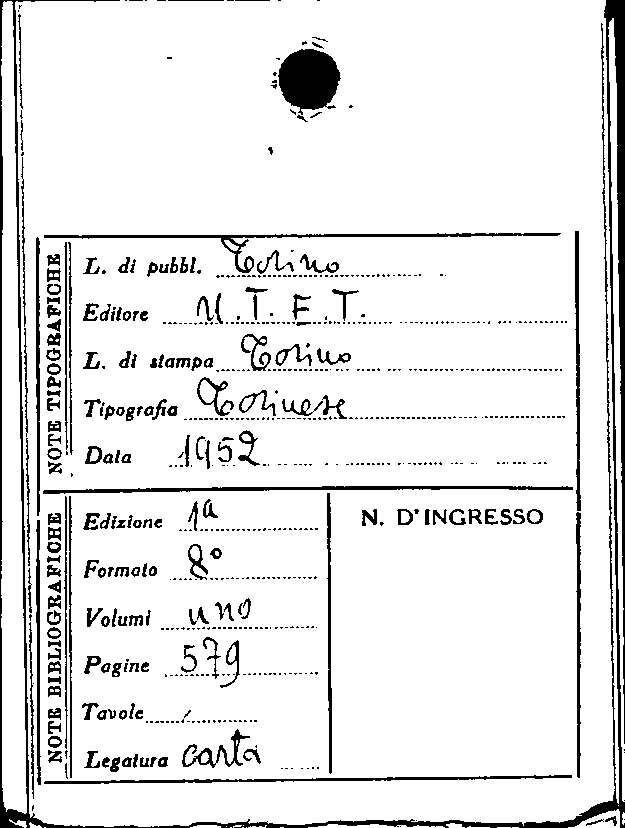 NOTE TIPOGRAFICHE
L. di pubbl. Torino
Editore U.T.E.T.
L. di stampa Torino
Tipografia Torinese
Data 1952
NOTE BIBLIOGRAFICHE
Edizione 1a
Formato 8°
Volumi uno
Pagine 579
Tavole /
Legatura carta
N. D'INGRESSO